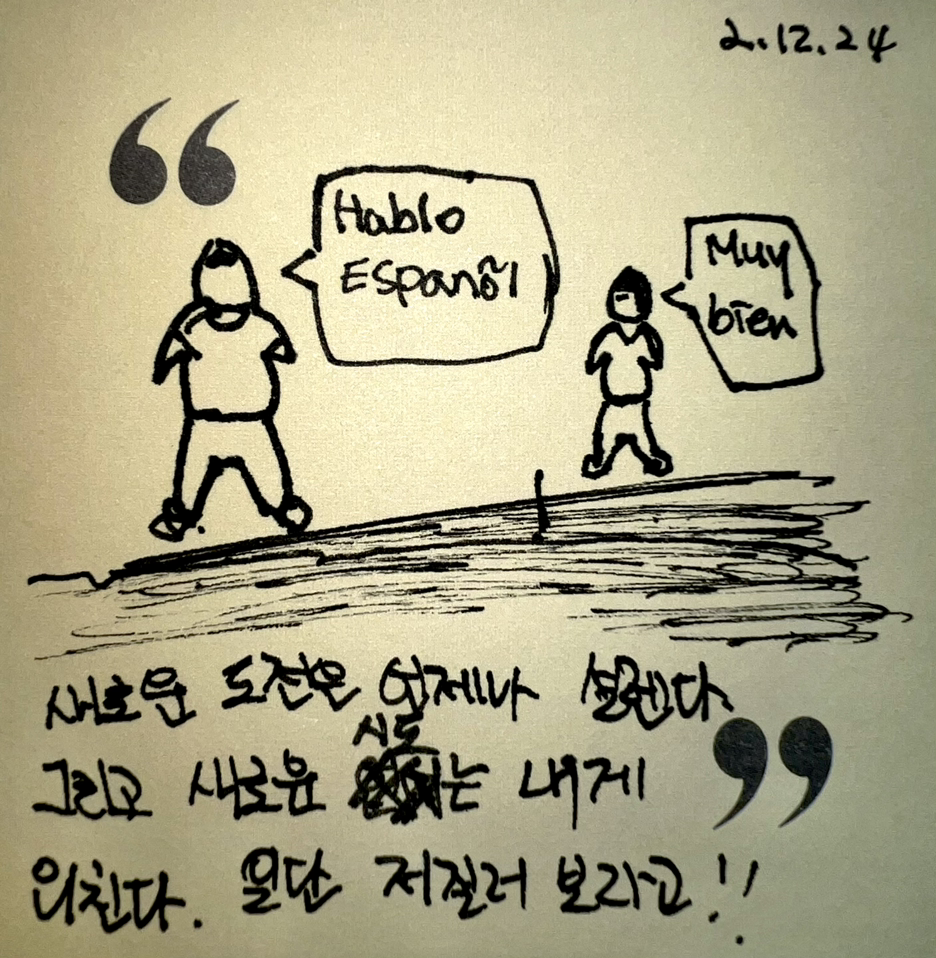 2.12.24
Hablo
Espanõl
Muy
bien
새로운 도전은 언제나 설렌다
그리고 새로운 시도는 내게
외친다. 일단 저질러 보라고!!